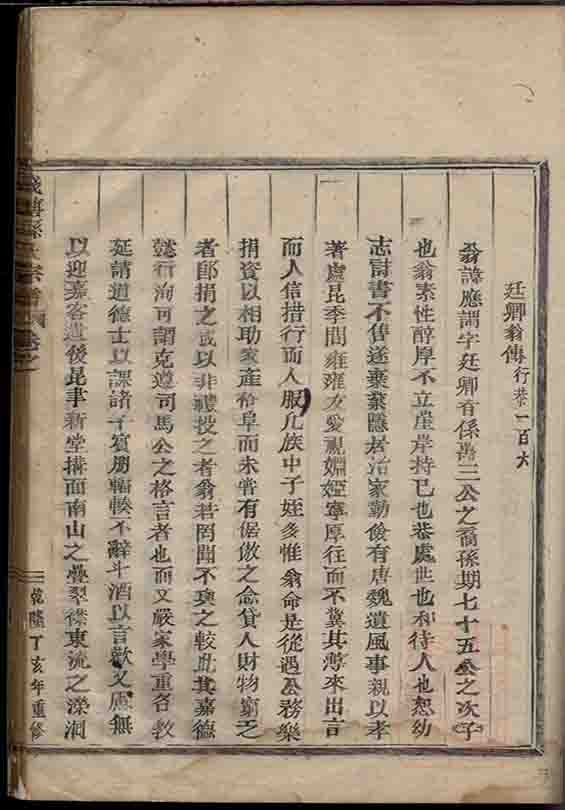 廷卿翁傳 行恭一百六
翁諱應調字廷卿百係萬三公之裔孫期七十五公之次子
也翁素性醇厚不立崖岸持已也恭處世也和待人也恕幼
志詩書不售遂棄業隱居治家勤儉有唐魏遺風事親以孝
著處昆季間雍雍友愛視婣婭寧厚往而不冀其薄來出言
而人信措行而人服凡族中子姪多惟翁命是從遇公務樂
捐資以相助家產裕阜而未嘗有倨傲之念貸人財物窮乏
者即捐之或以非禮投之者翁若罔聞不與之較此其嘉德
懿行洵可謂克遵司馬公之格言者也而又嚴家學重名教
延請道德士以課諸子賓朋輻輳不辭斗酒以言歡又慮無
以迎嘉客遺後昆聿新堂搆面南山之疊翠襟東流之瀠洄
孫氏宗譜 卷之
乾隆丁亥年重修